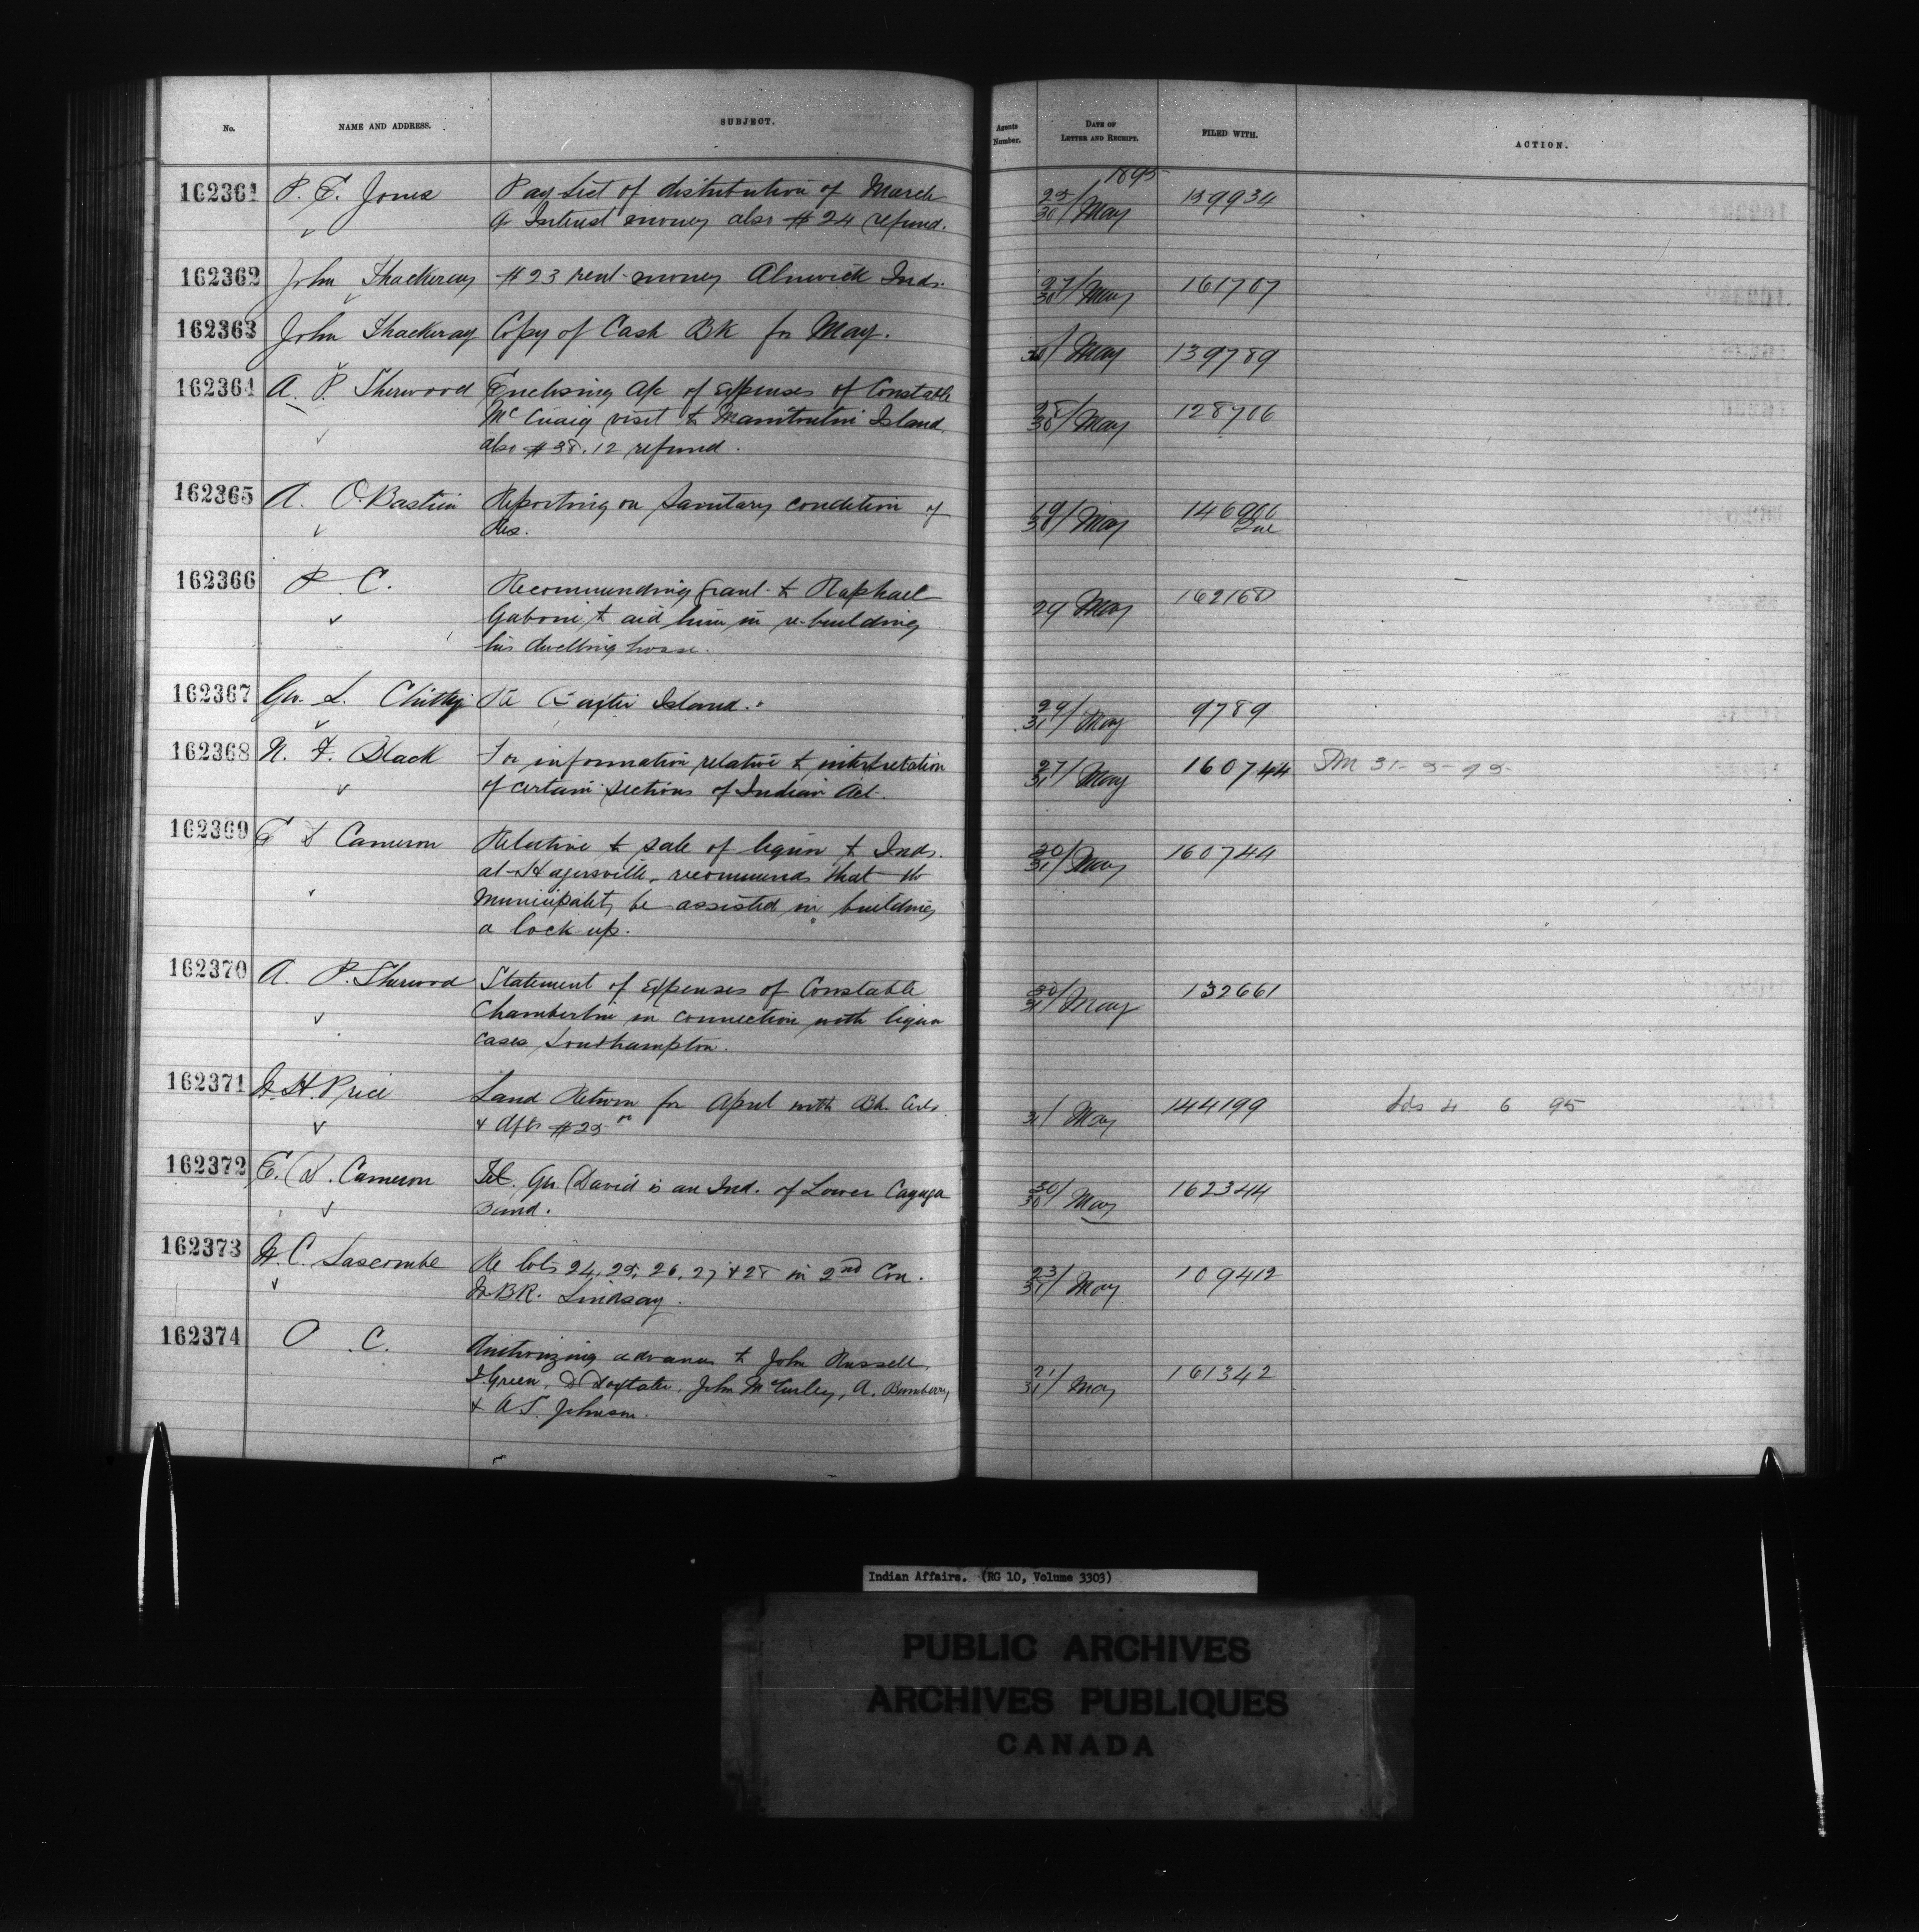 No. NAME AND ADDRESS. SUBJECT. Agents Number. DATE OF LETTER AND RECEIPT. FILED WITH. ACTION.
1895
162361 P. E. Jones Pay List of distribution of March 25/30 / May 139934
Interest money also $24 refund.
162362 John Thackeray $23 rent money Alnwick Inds. 27/30 / May 161707
162363 John Thackeray Copy of Cash BK for May. 30 / May 139789
162364 A. P. Sherwood Enclosing a/c of expenses of Constable 28/30 / May 128706
McCuaig visit to Manitoulin Island
also $38.12 refund.
162365 A. O. Bastien Reporting on Sanitary condition of 19/30 / May 146900
Res.
162366 P. C. Recommending grant to Raphael 29 May 162168
to aid him in re-building
his dwelling house.
162367 Geo. L. Chitty Re Island. 29/31 / May 9789
162368 N. F. Black For information relative to interpretation 27/31 / May 160744 31-5-95
of certain sections of Indian Act.
162369 E D Cameron Relative to sale of liquor to Inds. 30/31 / May 160744
at Hagersville, recommends that the
Municipality be assisted in building
a lock-up.
162370 A. P. Sherwood Statement of Expenses of Constable 30/31 / May 132661
Chamberlin in connection with liquor
cases Southampton.
162371 W. H. Price Land Return for April with Bk. Certs. 31 / May 144199 4 6 95
& Dfts $25
162372 E. D. Cameron Tel. Geo David is an Ind. of Lower Cayuga 30/30 / May 162344
Band.
162373 Lascombe Re lots 24, 25, 26, 27 & 28 in 2nd Con. 23/31 / May 109412
W.B.R. Lindsay.
162374 O. C. Authorizing advances to John Russell, 21/31 / May 161342
Green, D Doxtater, John McCurley, A. Bumberry,
& A.S. Johnson.
Indian Affairs. (RG 10, Volume 3303)
PUBLIC ARCHIVES
ARCHIVES PUBLIQUES
CANADA